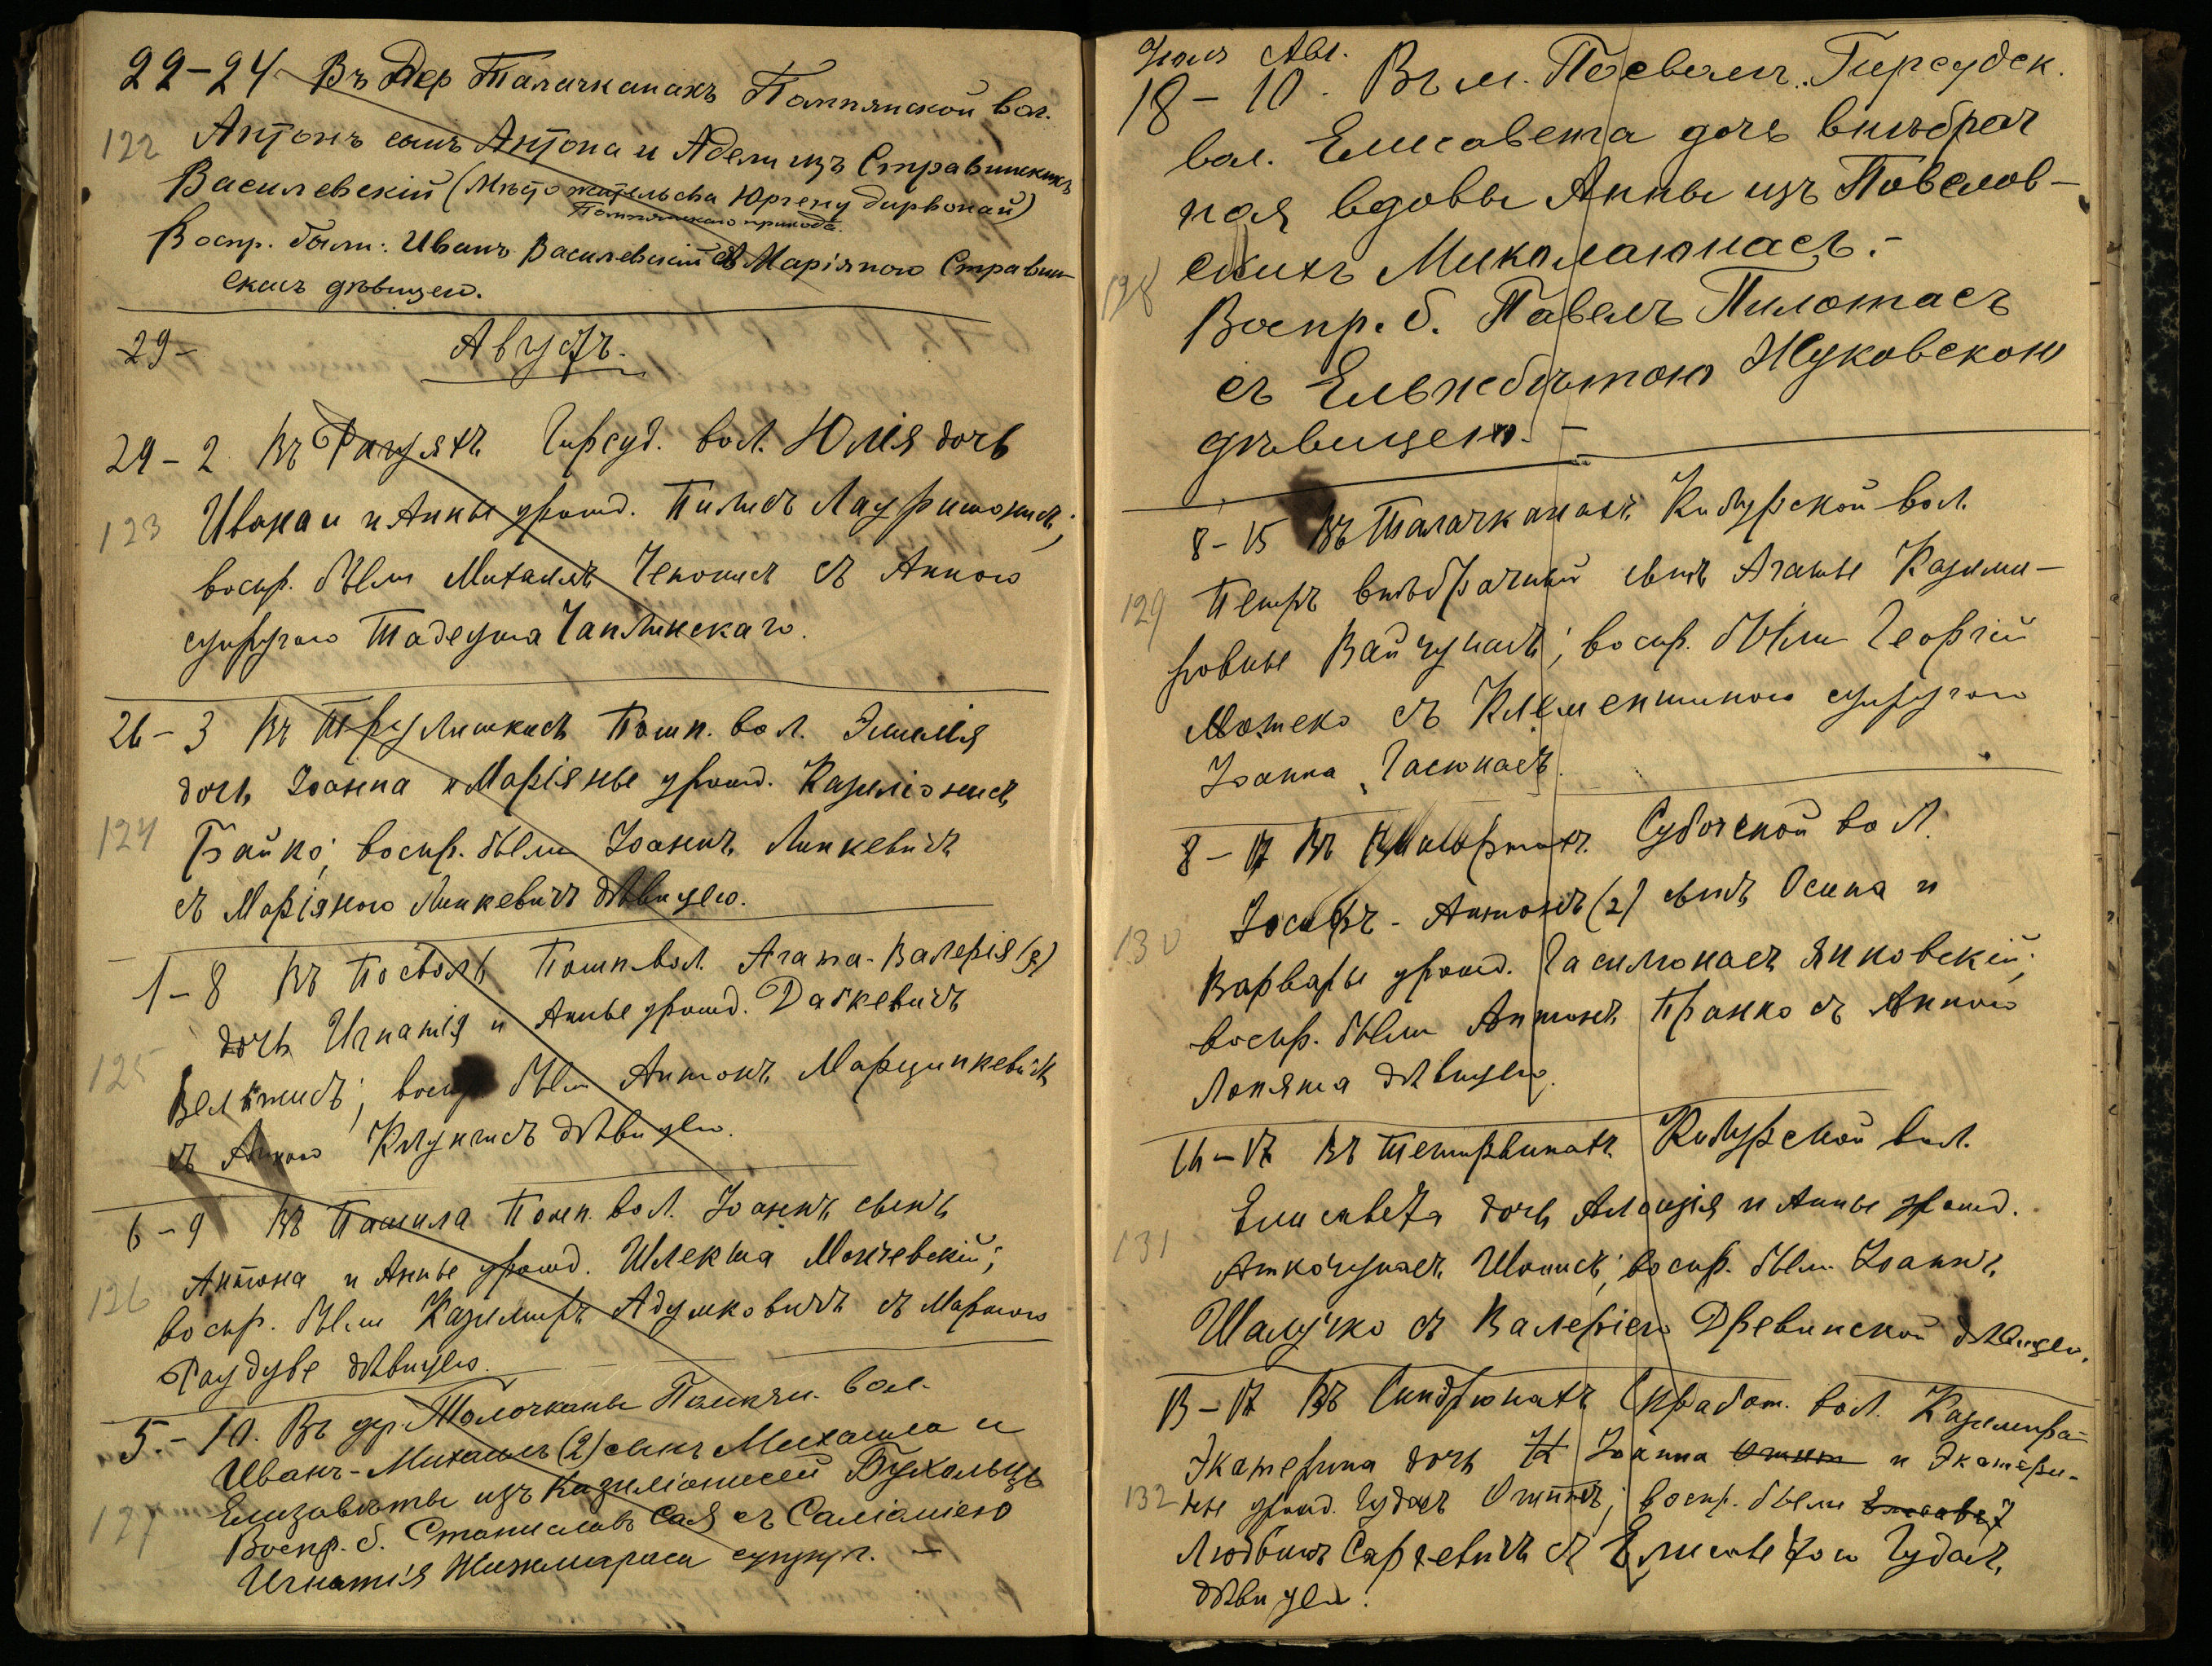 22-24 Въ Дер Талачканахъ Помпянской вол.
122 Антонъ сынъ Антона и Адели изъ Стравинскихъ
Василевскій (Мѣсто жительства Юргену дирвонай)
Помпянскаго прихода.
Воспр. были: Иванъ Василевскій съ Маріяною Стравин-
скасъ дѣвицею.
29- Августъ.
29-2 Въ Гирсуд. вол. Юлія дочь
123 Ивана и Анны урожд.
воспр. были Михаилъ съ Анною
супругою Тадеуша Чаплинскаго.
26-3 Въ Помп. вол. Эмилія
дочь Іоанна и Маріяны урожд. Казиліонисъ
124 Байко; воспр. были Іоаннъ Линкевичъ
съ Маріяною Линкевичъ дѣвицею.
1-8 Въ Посволь Помп. вол. Агата-Валерія (2)
дочь Игнатія и Анны урожд. Даткевичъ
125 воспр были Антонъ Марцинкевичъ
съ Анною дѣвицею.
6-9 Въ Пашила Помп. вол. Іоаннъ сынъ
126 Антона и Анны урожд. Шлекша Мончевскій;
воспр. были Казимиръ Адумковичъ съ Мартою
Раудуве дѣвицею.
5.-10. Въ дер. Талочканы Помпян. вол.
Иванъ-Михаилъ (2) сынъ Михаила и
Елизаветы изъ Казиліонисей Бухольцъ
127 Воспр. б. Станиславъ Сая съ Саліоміею
Игнатія супруг. -
Іюля Авг.
18-10. Въ м. Посволь. Гирсудск.
вол. Елисавета дочь внѣбрач
ная вдовы Анны изъ Повелов-
128 скихъ Миколаюнасъ.-
Воспр. б. Павелъ Пилотасъ
съ Ельжебѣтою Жуковскою
дѣвицею. -
8-15 Въ Талачканахъ Кибурской вол.
129 Петръ внѣбрачный сынъ Агаты Казими-
ровны Вайчунасъ; воспр. были Георгій
Мотеко съ Клементиною супругою
Іоанна Гасюнасъ.
8-17 Въ Суботской вол.
130 Іосифъ-Антонъ (2) сынъ Осипа и
Варвары урожд. Гасилюнасъ Янковскій;
воспр. были Антонъ Пранко съ Анною
Лопята дѣвицею.
16-17 Въ Тетирвинахъ Кибурской вол.
Елисавета дочь Алоизія и Анны урожд.
131 Аткочунасъ Шонисъ; воспр. были Іоаннъ
Шалучко съ Валеріею Древинской дѣвицею.
13-17 Въ Гиндрюнахъ Скработ. вол. Казимира-
Экатерина дочь Іоанна и Экатери-
132 ны урожд. Гудасъ воспр. были
Людвигъ Саргевичъ съ Елисаветою Гудасъ,
дѣвицею.